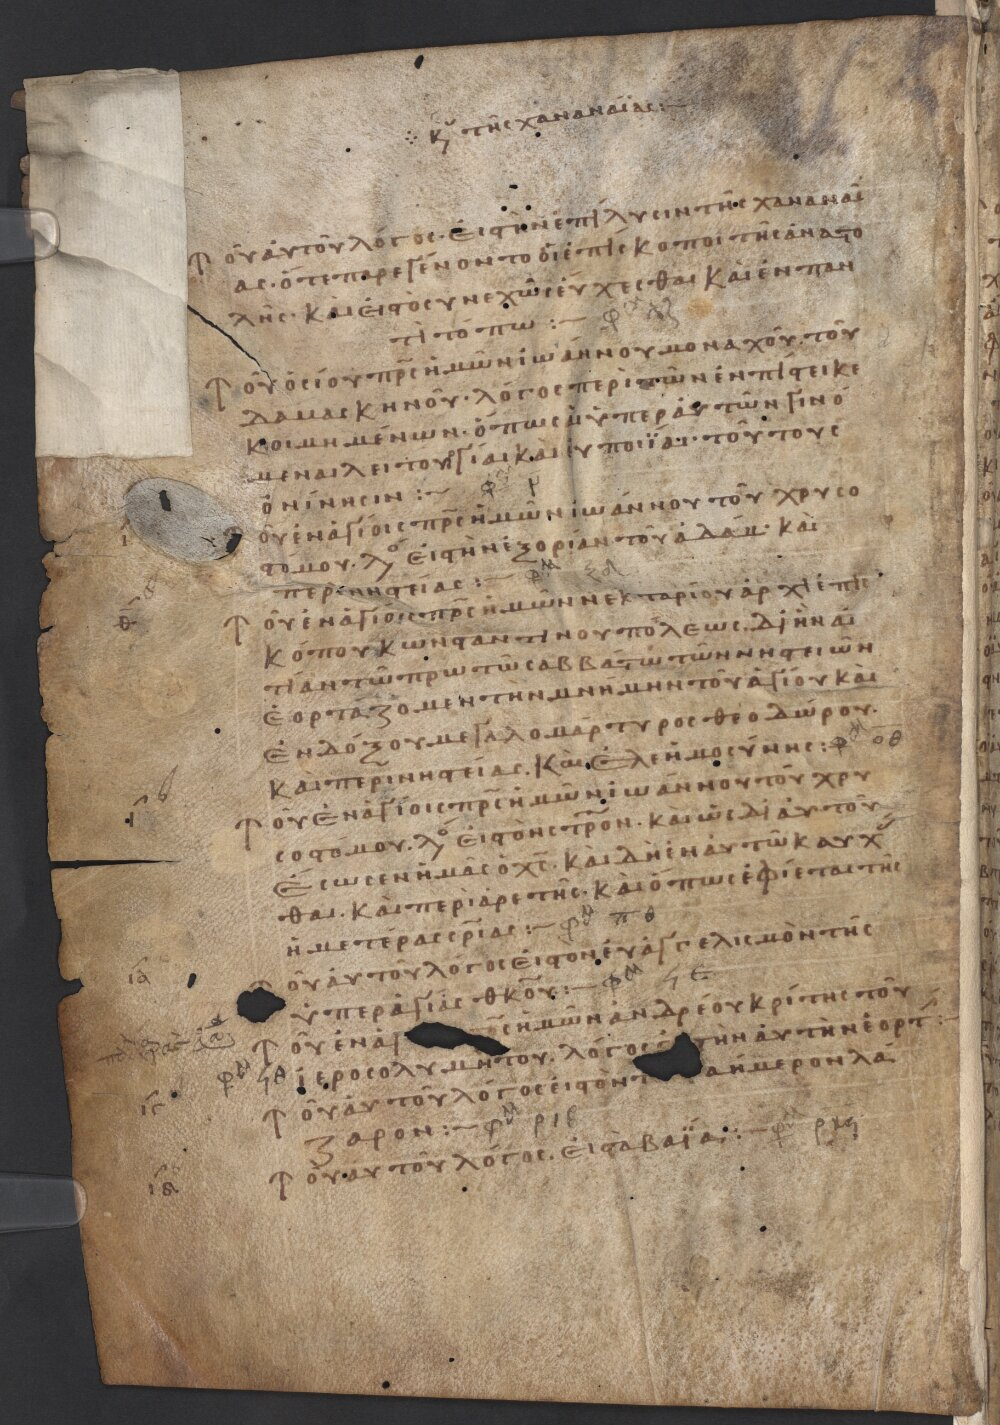 κυ τῆς χαναναίας:—
Τοῦ αὐτοῦ λόγος. Εἰς τὴν ἐπίλυσιν τῆς χαναναί
ας. ὅτε παρεγένοντο οἱ ἐπίσκοποι τῆς ἀνατο
λῆς. Καὶ εἰς τὸ συνεχῶς εὔχεσθαι καὶ ἐν παν
τὶ τόπω:— φυ
Τοῦ ὁσίου πρς ἡμῶν ἰωάννου μοναχοῦ. τοῦ
δαμασκηνοῦ. λόγος περὶ τῶν ἐν πίστει κε
κοιμημένων. ὅπως αἱ ὑπὲρ αὐτῶν γινό
μεναι λειτουργίαι καὶ εὐποιΐαι. τούτους
ὀνίνησιν:—
Τοῦ ἐν ἁγίοις πρς ἡμῶν ἰωάννου τοῦ χρυσο
στόμου. λο Εἰς τὴν ἐξορίαν τοῦ ἀδάμ. καὶ
περὶ νηστείας:— φυ
Τοῦ ἐν ἁγίοις πρς ἡμῶν νεκταρίου ἀρχιεπισ
κόπου κωνσταντινουπόλεως. Δι' ἣν αἰ
τίαν τῶ πρώτω σαββάτω τῶν νηστειῶν
ἑορτάζομεν τὴν μνήμην τοῦ ἁγίου καὶ
ἐνδόξου μεγαλομάρτυρος θεοδώρου.
καὶ περὶ νηστείας. καὶ ἐλεημοσύνης: φυ οθ
Τοῦ ἐν ἁγίοις πρς ἡμῶν ἰωάννου τοῦ χρυ
σοστόμου. λο Εἰς τὸν στρον. καὶ ὡς δι' αὐτοῦ
ἔσωσεν ἡμᾶς ὁ χς. καὶ δεῖ ἐν αὐτῶ καυχᾶσ
θαι. καὶ περὶ ἀρετῆς. καὶ ὅπως ἐφίεται τῆς
ἡμετέρας σρίας:— φυ πθ
οῦ αὐτοῦ λόγος εἰς τὸν εὐαγγελισμὸν τῆς
ὑπεραγίας θκου:— φυ ϟε
Τοῦ ἐν ἁγ ρς ἡμῶν ἀνδρέου κρίτης τοῦ
ἱεροσολυμήτου. λόγος τὴν αὐτὴν ἑορτ:—
φυ ϟθ
Τοῦ αὐτοῦ λόγος εἰς τὸν τ αήμερον λά
ζαρον:— φυ ριβ
Τοῦ αὐτοῦ λόγος. Εἰς τὰ βαΐα:— φυ
ι
θ
ια
ιδ